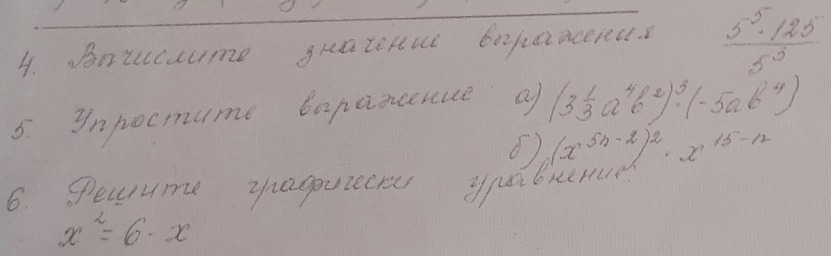 4. Вычислите значение выражения 5⁵·125/5³
5. Упростите выражение а) (3 1/3 a⁴b²)³·(-5ab⁴)
б) (x⁵ⁿ⁻²)²·x¹⁵⁻ⁿ
6. Решите графически уравнение:
x² = 6 - x